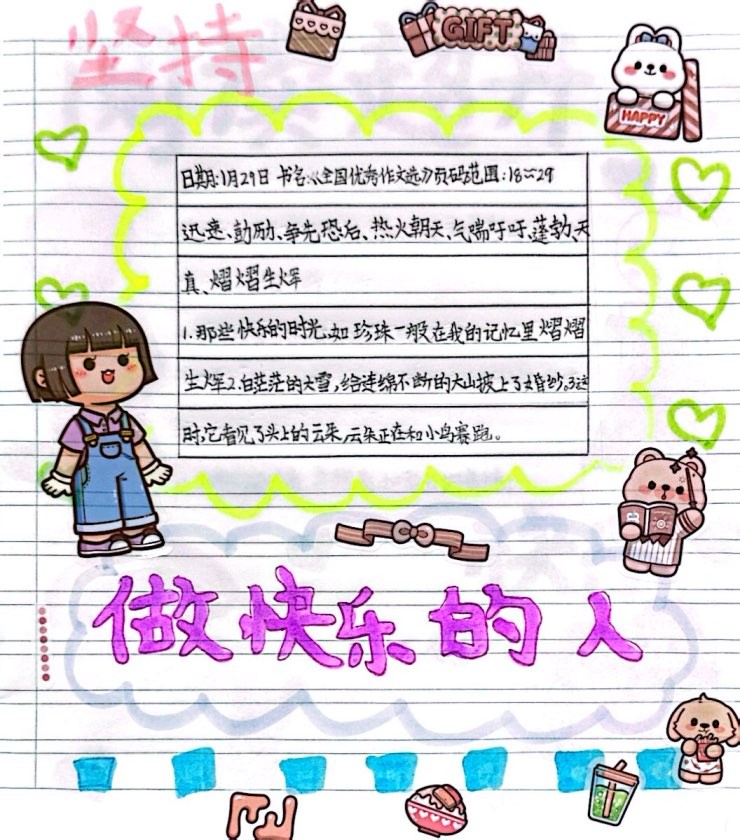 坚持
GIFT
HAPPY
日期:1月29日 书名:《全国优秀作文选》页码范围:18~29
迅速、鼓励、争先恐后、热火朝天、气喘吁吁、蓬勃、天
真、熠熠生辉
1.那些快乐的时光,如珍珠一般在我的记忆里熠熠
生辉2.白茫茫的大雪,给连绵不断的大山披上了婚纱.3这
时,它看见了头上的云朵,云朵正在和小鸟赛跑。
做快乐的人